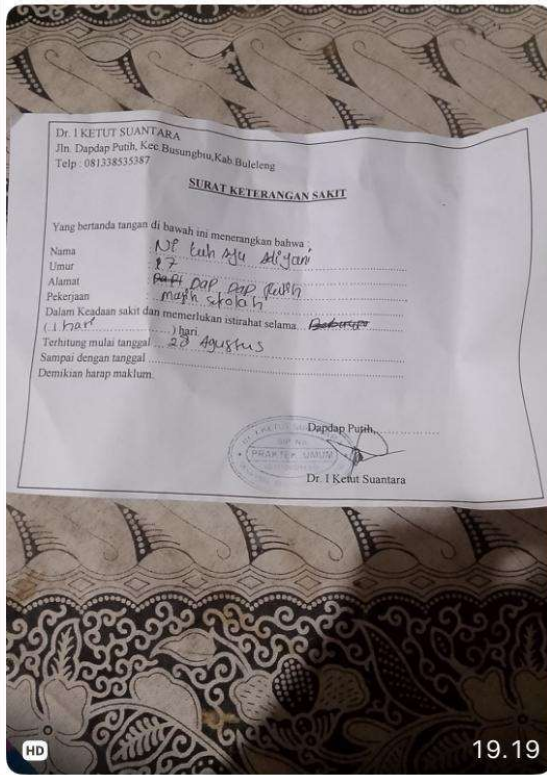 Dr. I KETUT SUANTARA
Jln. Dapdap Putih, Kec.Busungbiu,Kab.Buleleng
Telp : 081338535387
SURAT KETERANGAN SAKIT
Yang bertanda tangan di bawah ini menerangkan bahwa ;
Nama : Ni Luh Ayu
Umur : 17
Alamat : Dap Dap Putih
Pekerjaan : masih skolah
Dalam Keadaan sakit dan memerlukan istirahat selama
( 1 hari ) hari
Terhitung mulai tanggal Agustus
Sampai dengan tanggal
Demikian harap maklum.
Dapdap Putih,
PRAKTEK UMUM
Dr. I Ketut Suantara
HD
19.19